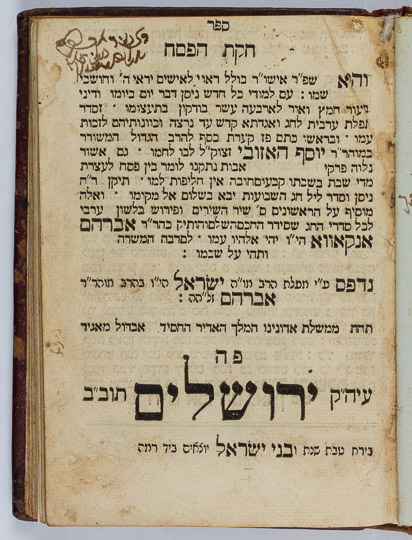 ספר
חקת הפסח
והא שפ״ר אישו״ר כולל ראוי לאישים יראי ה׳ וחושבי
שמו : עם למודי כל חדש ניסן דבר יום ביומו ודיני
ביעור חמץ ואור לארבעה עשר בודקין בתעצומו · וסדר
תפלת ערבית לחג ואגדתא קדש עד נרצה וכוונותיהם לזכות
עמו · ובראשי כתם פז קערת כסף להרב הגדול המשורר
כמוהר״ר יוסף האזובי זצוק״ל לבו לחמו · גם אשור
נלוה פרקי אבות נתקנו לומר בין פסח לעצרת
מדי שבת בשבתו קבעום חובה אין חליפות למו · תיקון ר״ח
ניסן וסדר ליל חג השבועות יבא בשלום אל מקומו · ואלה
מוסיף על הראשונים ס׳ שיר השירים ופירוש בלשון ערבי
לכל סדרי החג שסידר החכם השלם וה׳ ותיק כהר״ר אברהם
אנקאווא הי״ו יהי אלהיו עמו · למרבה המשרה
ותהי על שכמו :
נדפס ע״י מעלת הרב מו״ה ישראל הי״ו בהרב מוהר״ר
אברהם זל״הה :
תחת ממשלת אדונינו המלך האדיר החסיד · אבדול מאגיד
פה
עיה״ק ירושלים תוב״ב
בירח טבת שנת ובני ישראל יוצאים ביד רמה